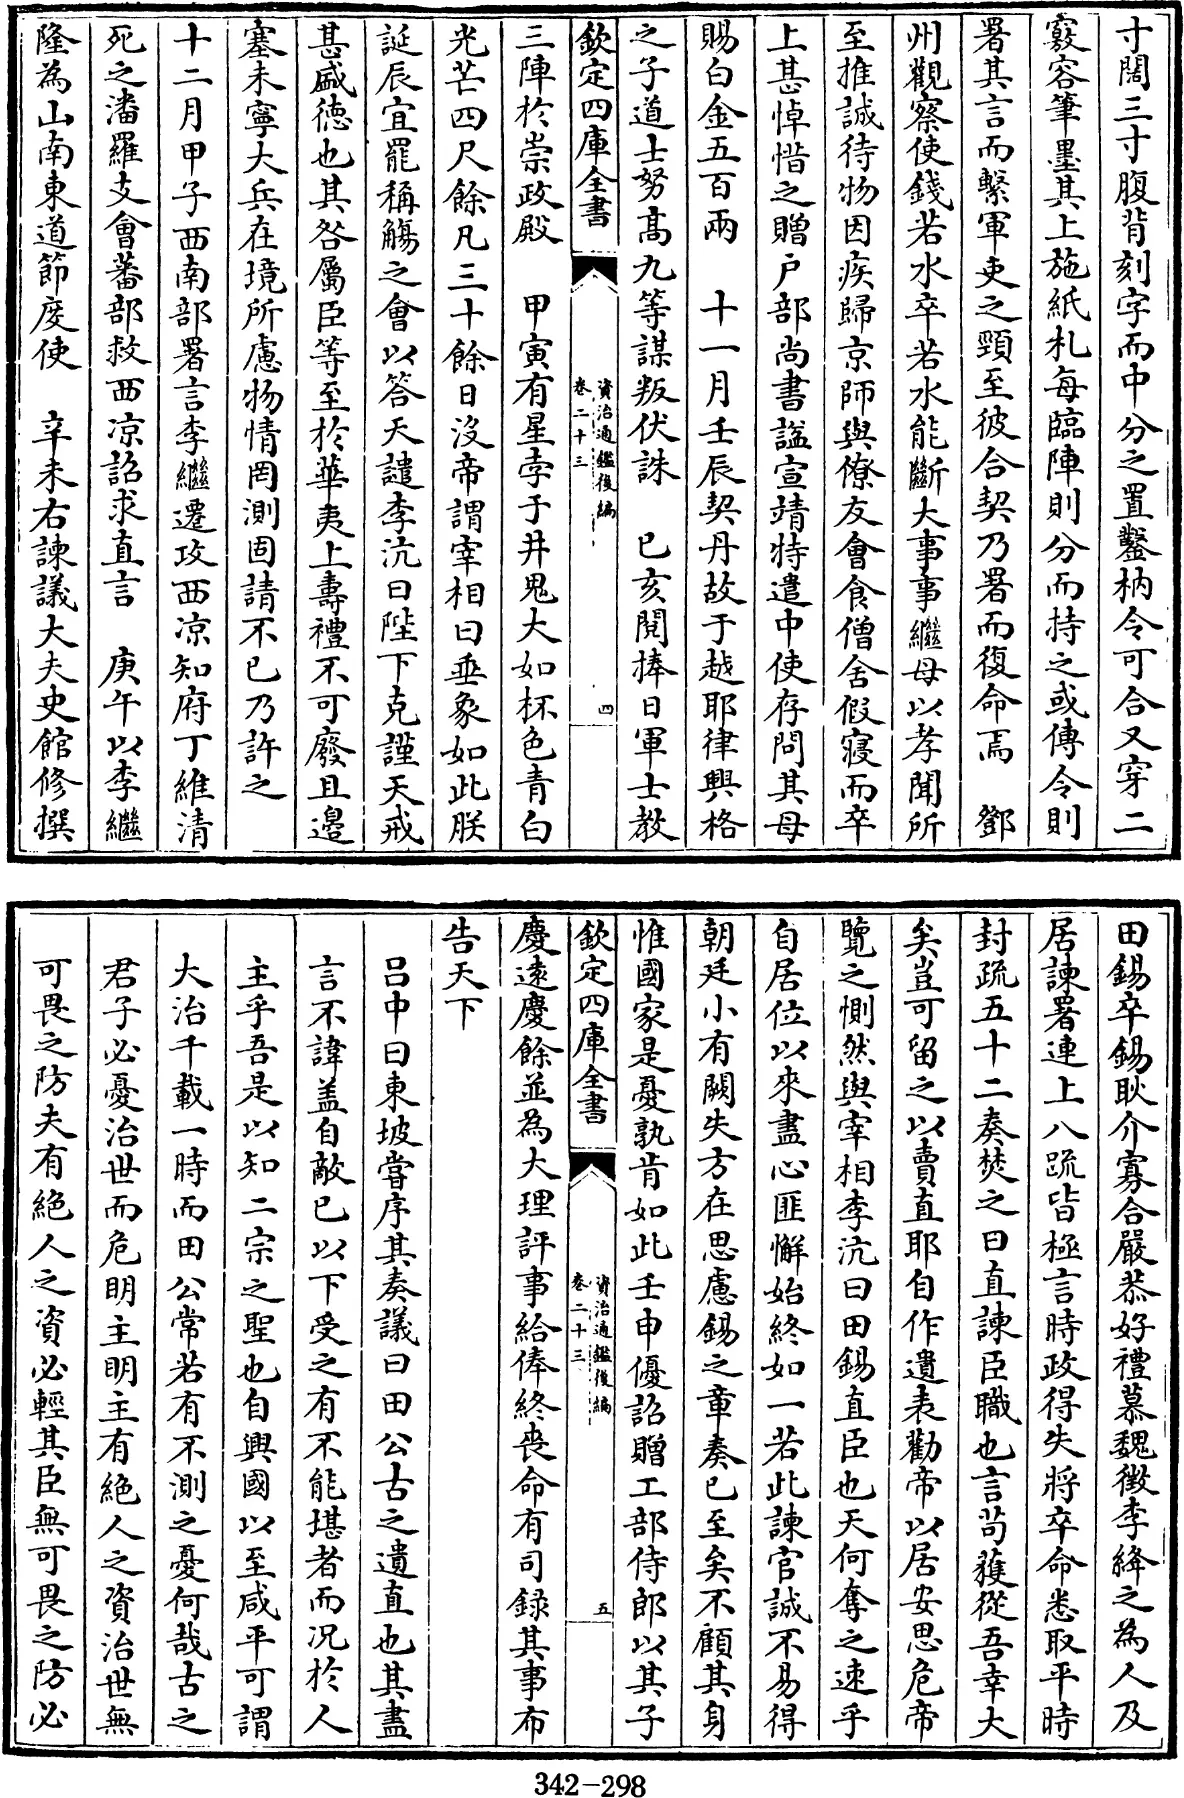 寸闊三寸腹背刻字而中分之置鑿枘令可合又穿二
竅容筆墨其上施紙札每臨陣則分而持之或傳令則
署其言而繫軍吏之頸至彼合契乃署而復命焉　鄧
州觀察使錢若水卒若水能斷大事事繼母以孝聞所
至推誠待物因疾歸京師與僚友會食僧舍假寢而卒
上甚悼惜之贈户部尚書諡宣靖特遣中使存問其母
賜白金五百兩　十一月壬辰契丹故于越耶律興格
之子道士努高九等謀叛伏誅　己亥閱捧日軍士教
欽定四庫全書
資治通鑑後編
卷二十三
四
三陣於崇政殿　甲寅有星孛于井鬼大如杯色青白
光芒四尺餘凡三十餘日沒帝謂宰相曰垂象如此朕
誕辰宜罷稱觴之會以答天譴李沆曰陛下克謹天戒
甚盛德也其咎屬臣等至於華夷上壽禮不可廢且邊
塞未寧大兵在境所慮物情罔測固請不已乃許之
十二月甲子西南部署言李繼遷攻西凉知府丁維清
死之潘羅支會蕃部救西凉詔求直言　庚午以李繼
隆為山南東道節度使　辛未右諫議大夫史館修撰
田錫卒錫耿介寡合嚴恭好禮慕魏徵李絳之為人及
居諫署連上八疏皆極言時政得失將卒命悉取平時
封疏五十二奏焚之曰直諫臣職也言苟獲從吾幸大
矣豈可留之以賣直耶自作遺表勸帝以居安思危帝
覽之惻然與宰相李沆曰田錫直臣也天何奪之速乎
自居位以來盡心匪懈始終如一若此諫官誠不易得
朝廷小有闕失方在思慮錫之章奏已至矣不顧其身
惟國家是憂孰肯如此壬申優詔贈工部侍郎以其子
欽定四庫全書
資治通鑑後編
卷二十三
五
慶遠慶餘並為大理評事給俸終喪命有司錄其事布
告天下
呂中曰東坡嘗序其奏議曰田公古之遺直也其盡
言不諱蓋自敵已以下受之有不能堪者而况於人
主乎吾是以知二宗之聖也自興國以至咸平可謂
大治千載一時而田公常若有不測之憂何哉古之
君子必憂治世而危明主明主有絶人之資治世無
可畏之防夫有絶人之資必輕其臣無可畏之防必
342-298